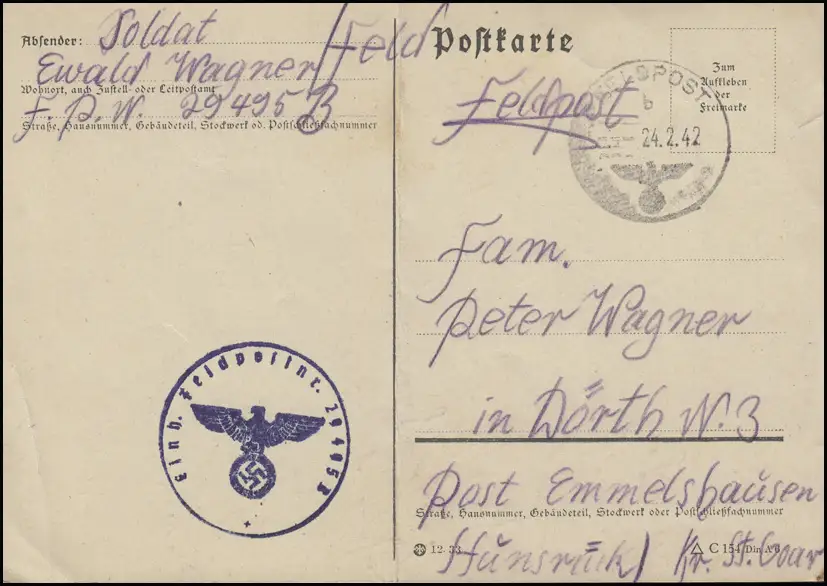 Absender: Soldat
Ewald Wagner / Feld
Wohnort, auch Zustell- oder Leitpostamt
F. P. N. 29495 B
Straße, Hausnummer, Gebäudeteil, Stockwerk od. Postschließfachnummer
Postkarte
Feldpost
Zum
Aufkleben
der
Freimarke
FELDPOST
b
24.2.42
Fam.
Peter Wagner
in Dörth N. 3
Post Emmelshausen
Straße, Hausnummer, Gebäudeteil, Stockwerk oder Postschließfachnummer
Hunsrück / Kr. St. Goar
12. 33
C 154 Din A 6
Einh. Feldpostnr. 29495 B